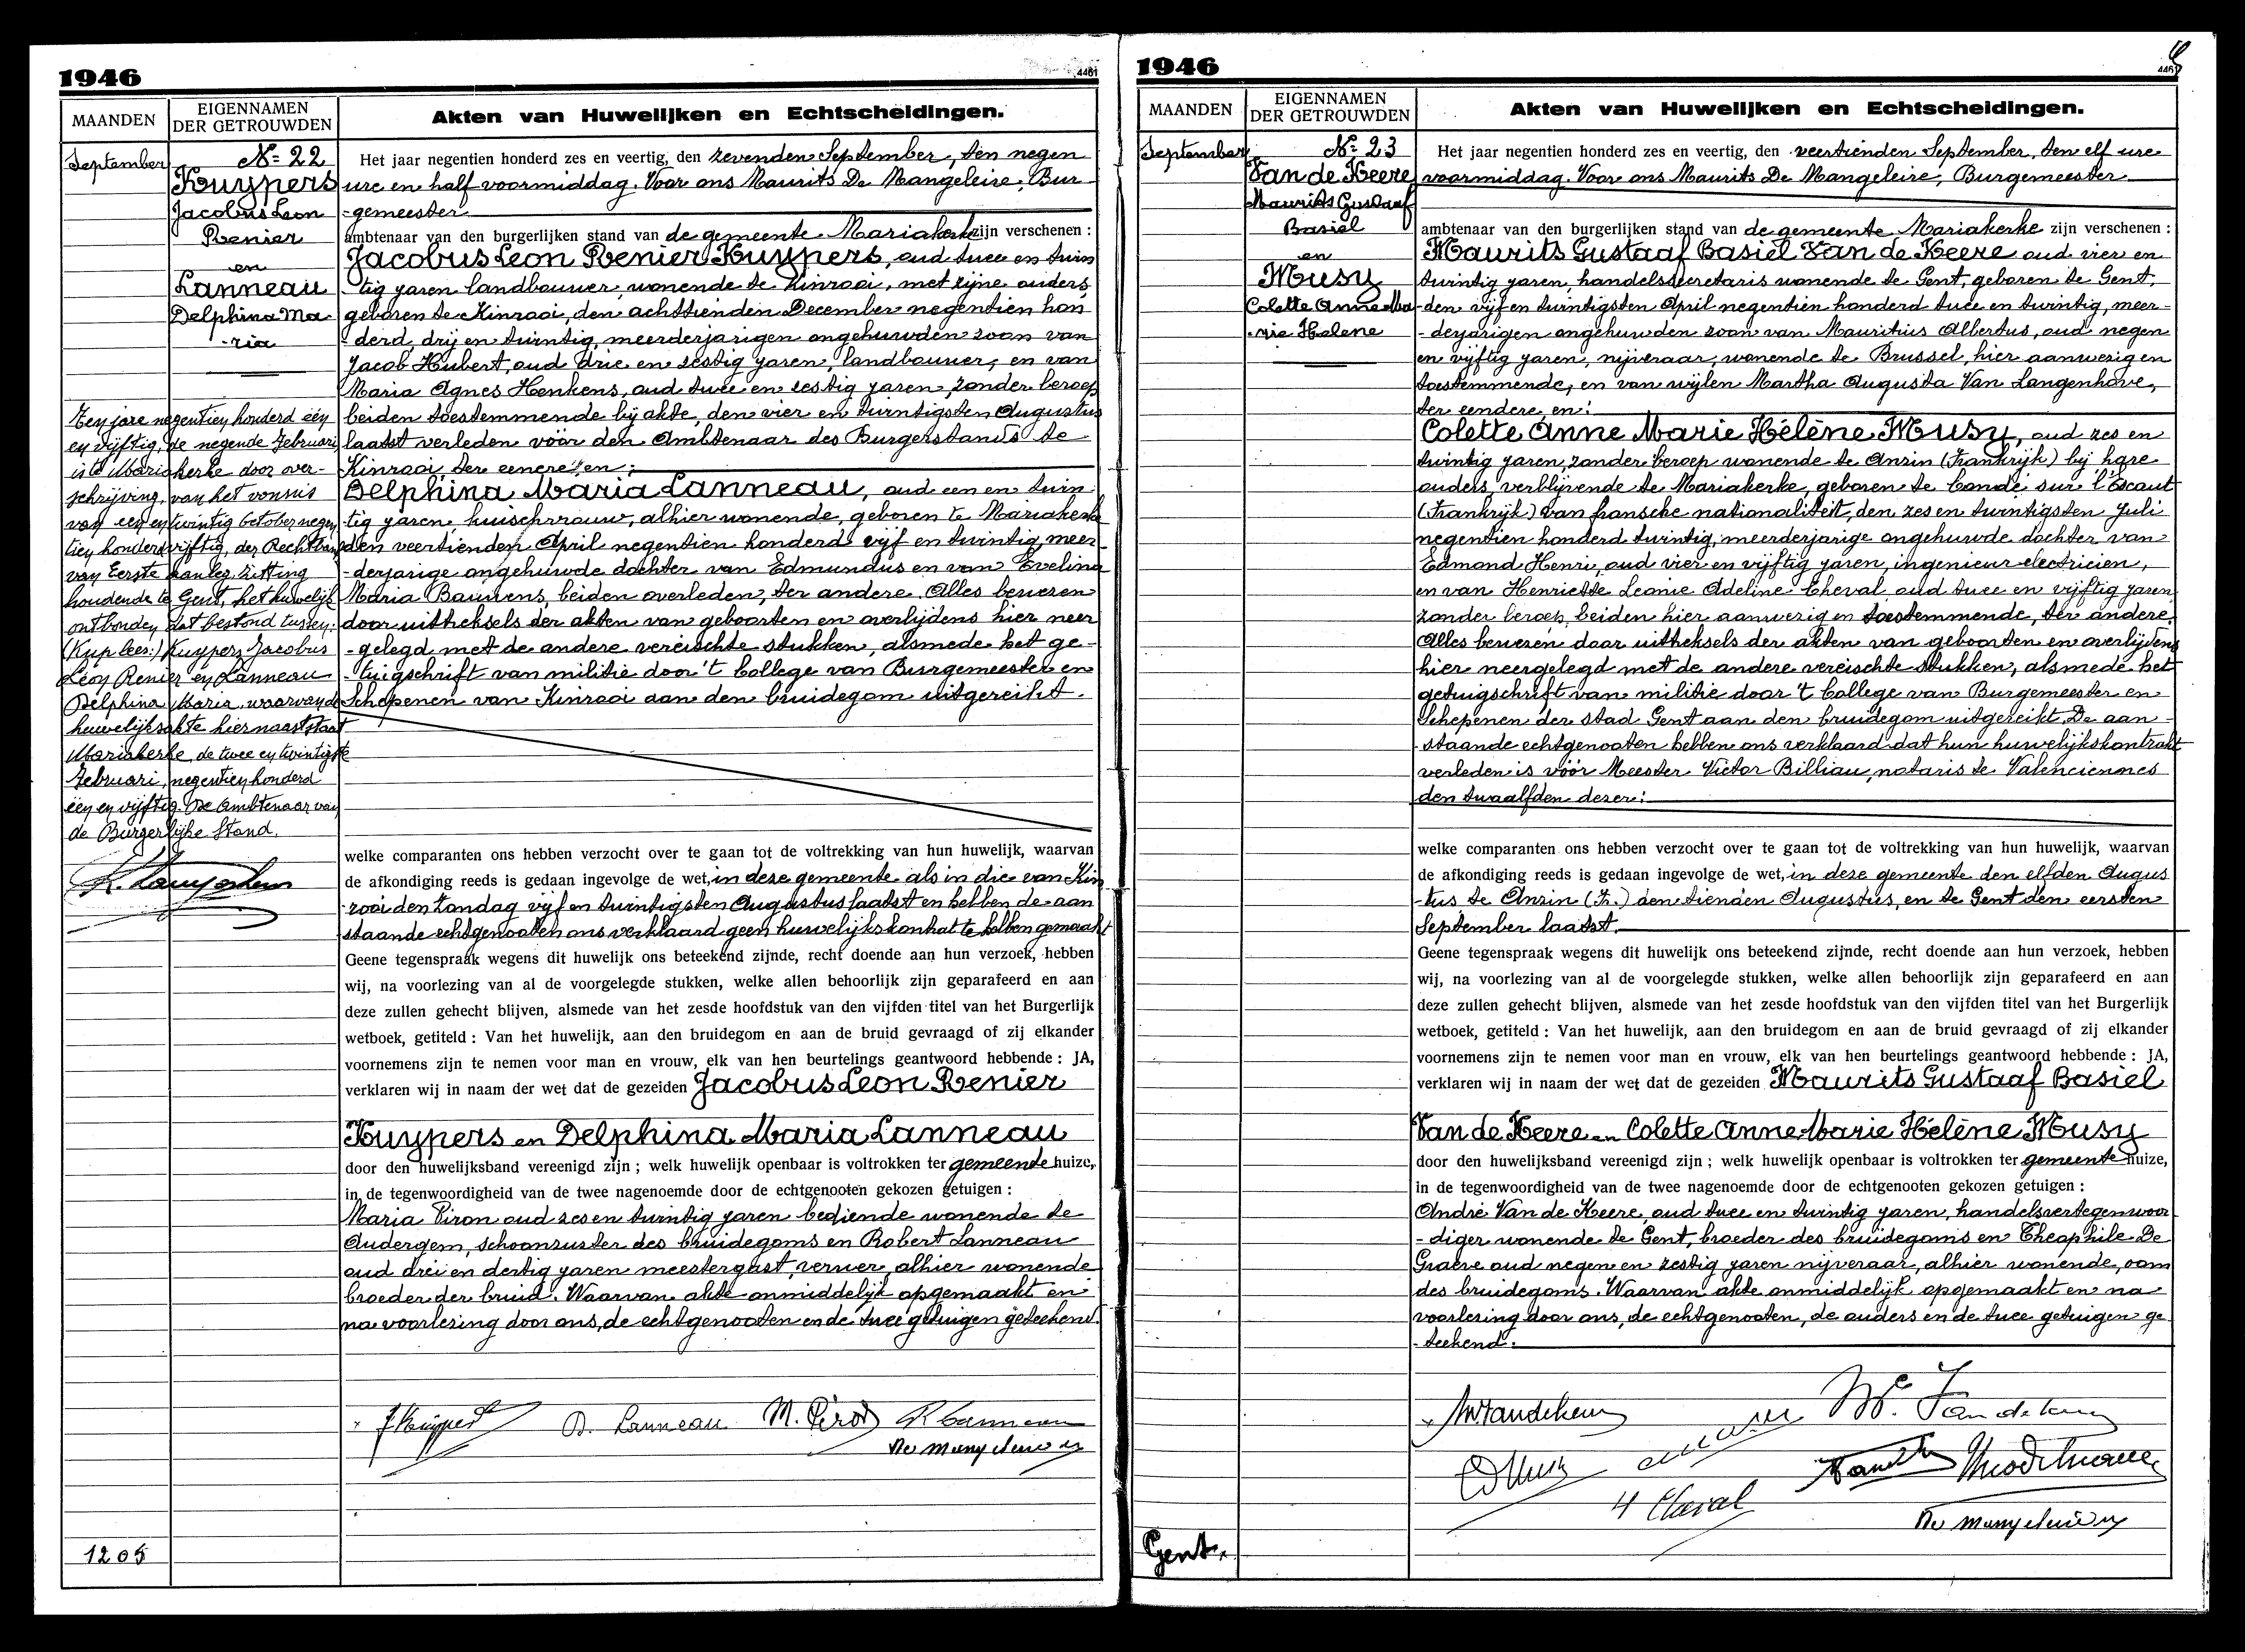 1946
4461
MAANDEN
EIGENNAMEN
DER GETROUWDEN
Akten van Huwelijken en Echtscheidingen.
September
N= 22
Kuypers
Jacobus Leon
Renier
en
Lanneau
Delphina Ma
-ria
Het jaar negentien honderd zes en veertig, den zevenden September, ten negen
ure en half voormiddag. Voor ons Maurits De Mangeleire, Bur-
-gemeester
ambtenaar van den burgerlijken stand van de gemeente Mariakerke zijn verschenen :
Jacobus Leon Renier Kuypers, oud twee en twin
-tig jaren landbouwer, wonende te Kinrooi, met zijne ouders,
geboren te Kinrooi, den achttienden December negentien hon
-derd drij en twintig, meerderjarigen ongehuwden zoon van
Jacob Hubert, oud drie en zestig jaren, landbouwer, en van
Maria Agnes Henkens, oud twee en zestig jaren, zonder beroep
beiden toestemmende bij akte, den vier en twintigsten Augustus
laatst verleden vóór den Ambtenaar des Burgerstands te
Kinrooi, ter eenere, en :
Delphina Maria Lanneau, oud een en twin
-tig jaren, huischvrouw, alhier wonende, geboren te Mariakerke
den veertienden April negentien honderd vijf en twintig, meer-
-derjarige ongehuwde dochter van Edmundus en van Evelina
Maria Bauwens, beiden overleden, ter andere. Alles bewezen
door uittreksels der akten van geboorten en overlijdens hier neer
-gelegd met de andere vereischte stukken, alsmede het ge-
-tuigschrift van militie door 't College van Burgemeester en
Schepenen van Kinrooi aan den bruidegom uitgereikt.
Ten jare negentien honderd een
en vijftig, de negende Februari,
is te Mariakerke door over-
schrijving, van het vonnis
van een en twintig october negen
tien honderd vijftig, der Rechtbank
van Eerste aanleg, zitting
houdende te Gent, het huwelijk
ontbonden dat bestond tussen:
(Kup lees:) Kuypers Jacobus
Léon Renier en Lanneau
Delphina Maria, waarvan de
huwelijksakte hiernaast staat
Mariakerke, de twee en twintigste
Februari, negentien honderd
een en vijftig. De Ambtenaar van
de Burgerlijke Stand.
welke comparanten ons hebben verzocht over te gaan tot de voltrekking van hun huwelijk, waarvan
de afkondiging reeds is gedaan ingevolge de wet, in deze gemeente als in die van Kin
-rooi den Zondag vijf en twintigsten Augustus laatst en hebben de aan
-staande echtgenooten ons verklaard geen huwelijkskontrat te hebben gemaakt
Geene tegenspraak wegens dit huwelijk ons beteekend zijnde, recht doende aan hun verzoek, hebben
wij, na voorlezing van al de voorgelegde stukken, welke allen behoorlijk zijn geparafeerd en aan
deze zullen gehecht blijven, alsmede van het zesde hoofdstuk van den vijfden titel van het Burgerlijk
wetboek, getiteld : Van het huwelijk, aan den bruidegom en aan de bruid gevraagd of zij elkander
voornemens zijn te nemen voor man en vrouw, elk van hen beurtelings geantwoord hebbende : JA,
verklaren wij in naam der wet dat de gezeiden Jacobus Leon Renier
Kuypers en Delphina Maria Lanneau
door den huwelijksband vereenigd zijn ; welk huwelijk openbaar is voltrokken ter gemeente huize,
in de tegenwoordigheid van de twee nagenoemde door de echtgenooten gekozen getuigen :
Maria Piron oud zes en twintig jaren bediende wonende te
Oudergem, schoonzuster des bruidegoms en Robert Lanneau
oud drei en dertig jaren meestergast, verver, alhier wonende
broeder der bruid. Waarvan akte onmiddelijk opgemaakt en
na voorlezing door ons, de echtgenooten en de twee getuigen geteekend.
J Kuypers D. Lanneau M. Piron R Lanneau
De Mangeleire
1205
1946
MAANDEN
EIGENNAMEN
DER GETROUWDEN
Akten van Huwelijken en Echtscheidingen.
September
N= 23
Van de Keere
Maurits Gustaaf
Basiel
en
Musy
Colette Anne Ma
-rie Helene
Het jaar negentien honderd zes en veertig, den veertienden September, ten elf ure
voormiddag. Voor ons Maurits De Mangeleire, Burgemeester
ambtenaar van den burgerlijken stand van de gemeente Mariakerke zijn verschenen :
Maurits Gustaaf Basiel Van de Keere oud vier en
twintig jaren, handelssecretaris wonende te Gent, geboren te Gent,
den vijf en twintigsten April negentien honderd twee en twintig, meer-
-derjarigen ongehuwden zoon van Mauritius Albertus, oud negen
en vijftig jaren, nijveraar, wonende te Brussel, hier aanwezig en
toestemmende, en van wijlen Martha Augusta Van Langenhove,
ter eendere en :
Colette Anne Marie Hélène Musy, oud zes en
twintig jaren, zonder beroep wonende te Anzin (Frankrijk) bij hare
ouders, verblijvende te Mariakerke, geboren te Condé sur l'Escaut
(Frankrijk) van fransche nationaliteit, den zes en twintigsten Juli
negentien honderd twintig, meerderjarige ongehuwde dochter van
Edmond Henri, oud vier en vijftig jaren, ingenieur electricien,
en van Henriette Leonie Adeline Cheval oud twee en vijftig jaren
zonder beroep, beiden hier aanwezig en toestemmende, ter andere.
Alles bewezen door uittreksels der akten van geboorten en overlijdens
hier neergelegd met de andere vereischte stukken, alsmede het
getuigschrift van militie door 't College van Burgemeester en
Schepenen der stad Gent aan den bruidegom uitgereikt. De aan-
-staande echtgenooten hebben ons verklaard dat hun huwelijkskontrakt
verleden is vóór Meester Victor Billiau, notaris te Valenciennes
den twaalfden dezer:
welke comparanten ons hebben verzocht over te gaan tot de voltrekking van hun huwelijk, waarvan
de afkondiging reeds is gedaan ingevolge de wet, in deze gemeente den elfden Augus
-tus te Anzin (Fr.) den tienden Augustus, en te Gent den eersten
September laatst.
Geene tegenspraak wegens dit huwelijk ons beteekend zijnde, recht doende aan hun verzoek, hebben
wij, na voorlezing van al de voorgelegde stukken, welke allen behoorlijk zijn geparafeerd en aan
deze zullen gehecht blijven, alsmede van het zesde hoofdstuk van den vijfden titel van het Burgerlijk
wetboek, getiteld : Van het huwelijk, aan den bruidegom en aan de bruid gevraagd of zij elkander
voornemens zijn te nemen voor man en vrouw, elk van hen beurtelings geantwoord hebbende : JA,
verklaren wij in naam der wet dat de gezeiden Maurits Gustaaf Basiel
Van de Keere en Colette Anne Marie Hélène Musy
door den huwelijksband vereenigd zijn ; welk huwelijk openbaar is voltrokken ter gemeente huize,
in de tegenwoordigheid van de twee nagenoemde door de echtgenooten gekozen getuigen :
André Van de Keere, oud twee en twintig jaren, handelsvertegenwoor
-diger wonende te Gent, broeder des bruidegoms en Theophile De
Graeve oud negen en zestig jaren nijveraar, alhier wonende, oom
des bruidegoms. Waarvan akte onmiddelijk opgemaakt en na
voorlezing door ons, de echtgenooten, de ouders en de twee getuigen ge
-teekend.
H Cheval
De Mangeleire
Gent.